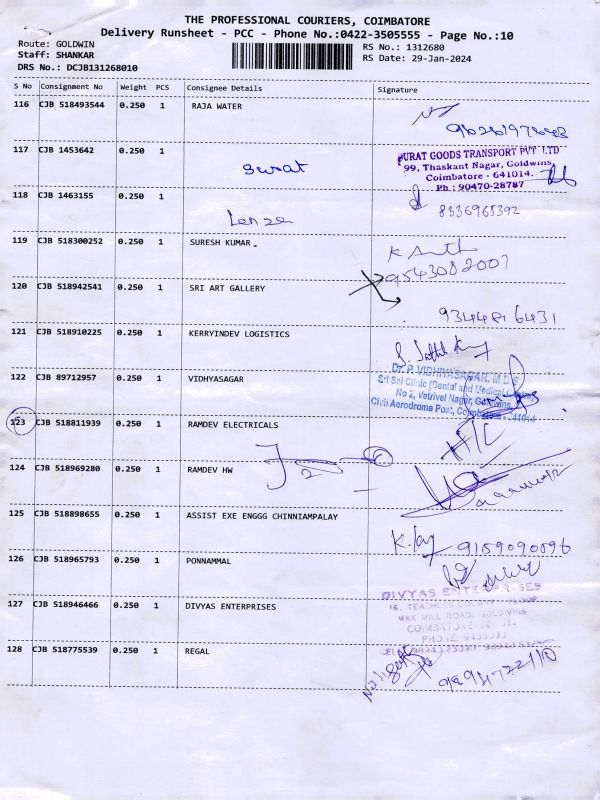 THE PROFESSIONAL COURIERS, COIMBATORE
Delivery Runsheet - PCC - Phone No.:0422-3505555 - Page No.:10
Route: GOLDWIN
Staff: SHANKAR
DRS No.: DCJB131268010
RS No.: 1312680
RS Date: 29-Jan-2024
S No Consignment No Weight PCS Consignee Details Signature
116 CJB 518493544 0.250 1 RAJA WATER
117 CJB 1453642 0.250 1 Surat
SURAT GOODS TRANSPORT PVT LTD
99, Thaskant Nagar, Goldwins,
Coimbatore - 641014.
Ph.: 90470-28787
118 CJB 1463155 0.250 1
8336965392
119 CJB 518300252 0.250 1 SURESH KUMAR.
9543082007
120 CJB 518942541 0.250 1 SRI ART GALLERY
9344816431
121 CJB 518910225 0.250 1 KERRYINDEV LOGISTICS
122 CJB 89712957 0.250 1 VIDHYASAGAR
Dr. P. VIDHYASAGAR, M.D.S
Sri Sri Clinic (Dental and Medical)
No 2, Vetrivel Nagar, Goldwins,
Civil Aerodrome Post, Coimbatore - 641014
123 CJB 518811939 0.250 1 RAMDEV ELECTRICALS
124 CJB 518969280 0.250 1 RAMDEV HW
125 CJB 518898655 0.250 1 ASSIST EXE ENGGG CHINNIAMPALAY
9159090096
126 CJB 518965793 0.250 1 PONNAMMAL
127 CJB 518946466 0.250 1 DIVYAS ENTERPRISES
DIVYAS ENTERPRISES
16, TEACHERS COLONY
MAK MILL ROAD, GOLDWINS
COIMBATORE
128 CJB 518775539 0.250 1 REGAL